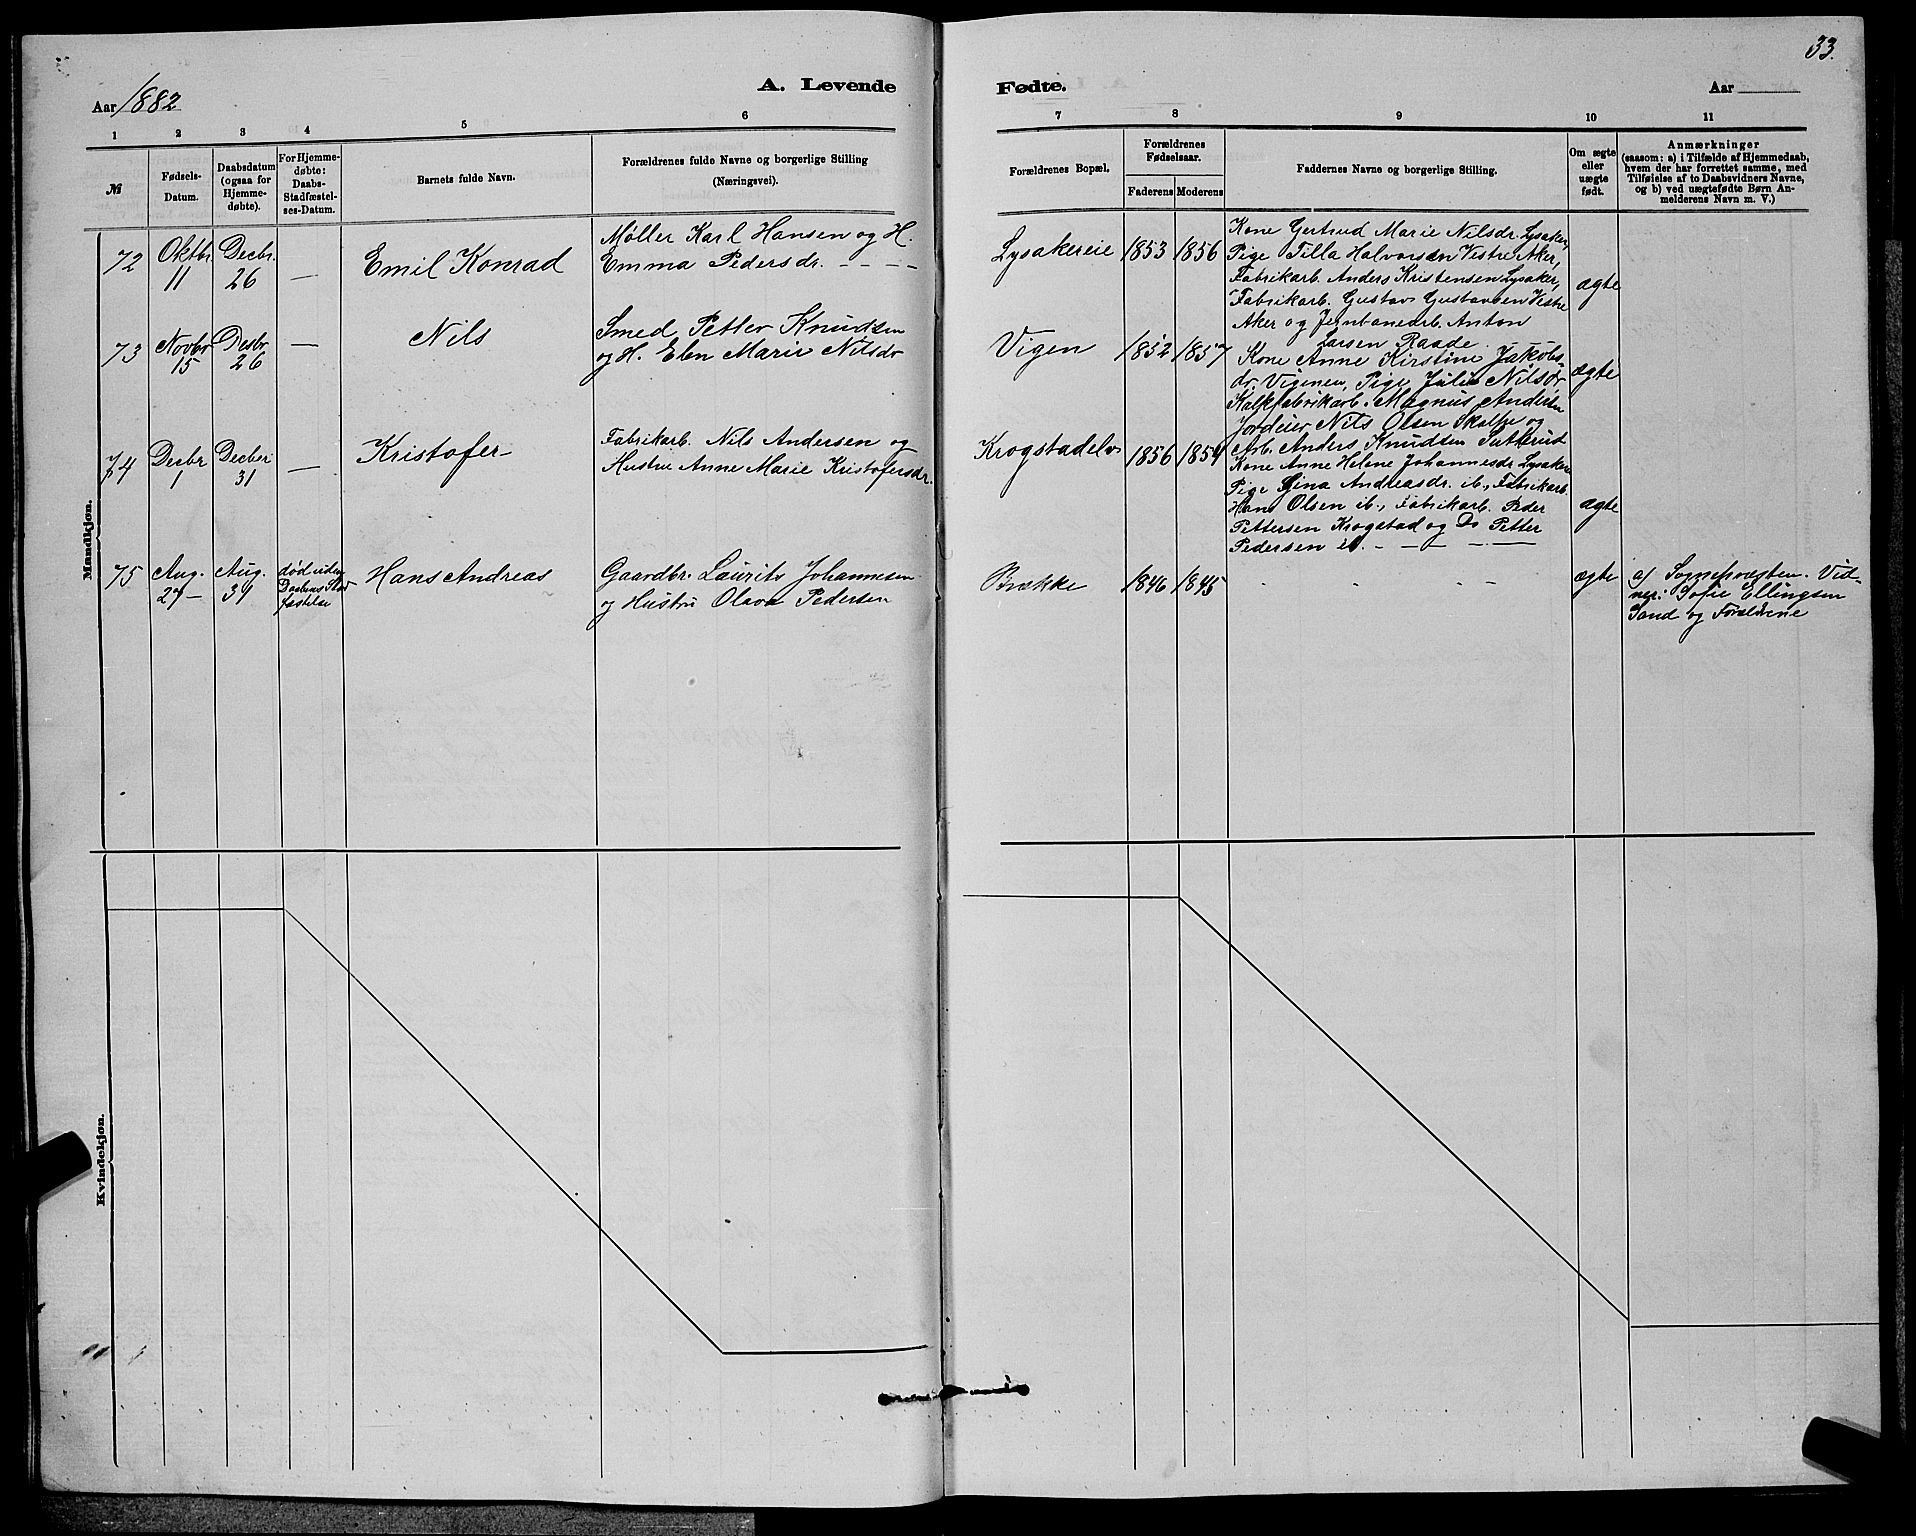 33.
Aar 1882
A. Levende
Fødte.
Aar
1 2 3 4 5 6
7 8 9 10 11
№
Fødsels-
Datum.
Daabsdatum
(ogsaa for
Hjemme-
døbte).
For Hjemme-
døbte:
Daabs-
Stadfæstel-
ses-Datum.
Barnets fulde Navn.
Forældrenes fulde Navne og borgerlige Stilling
(Næringsvei).
Forældrenes Bopæl.
Forældrenes
Fødselsaar.
Faderens Moderens
Faddernes Navne og borgerlige Stilling.
Om ægte
eller
uægte
født.
Anmærkninger
(saasom: a) i Tilfælde af Hjemmedaab,
hvem der har forrettet samme, med
Tilføielse af to Daabsvidners Navne,
og b) ved uægtefødte Børn An-
melderens Navn m. V.)
Mandkjøn.
72
Oktbr.
11
Decbr.
26
—
Emil Konrad
Møller Karl Hansen og H.
Emma Pedersdr. - - - -
Lysakereie
1853 1856
Kone Gertrud Marie Nilsdr. Lysaker,
Pige Tilla Halvorsen Vestre Aker,
Fabrikarb. Anders Kristensen Lysaker,
Fabrikarb. Gustav Gustavsen Vestre
Aker og Jernbanearb. Anton
Larsen Raade.
ægte
73
Novbr
15
Desbr
26
—
Nils
Smed Petter Knudsen
og H. Elen Marie Nilsdr
Vigen
1852 1857
Kone Anne Kirstine Jakobs
dr. Vigenen, Pige Julie Nilsdr
Kalkfabrikarb. Magnus Andersen
Jordeier Nils Olsen Skalpe og
Arb. Anders Knudsen Satterud
ægte
74
Decbr
1
Decber
31
—
Kristofer
Fabrikarb. Nils Andersen og
Hustru Anne Marie Kristofersdr.
Krogstadelv
1856 1854
Kone Anne Helene Johannesdr Lysaker
Pige Gina Andreasdr. ib., Fabrikarb.
Hans Olsen ib., Fabrikarb. Peder
Pettersen Krogstad og Do Petter
Pedersen ib. - — — -
ægte
75
Aug.
27 —
Aug.
31
død uden
Daabens Stad
fæstelse
Hans Andreas
Gaardbr. Laurits Johannesen
og Hustru Olava Pedersen
Brække
1846 1845
- - - -
ægte
a) Sognepræsten. Vid-
ner: Sofie Ellingsen
Sand og Forældrene
Kvindekjøn.